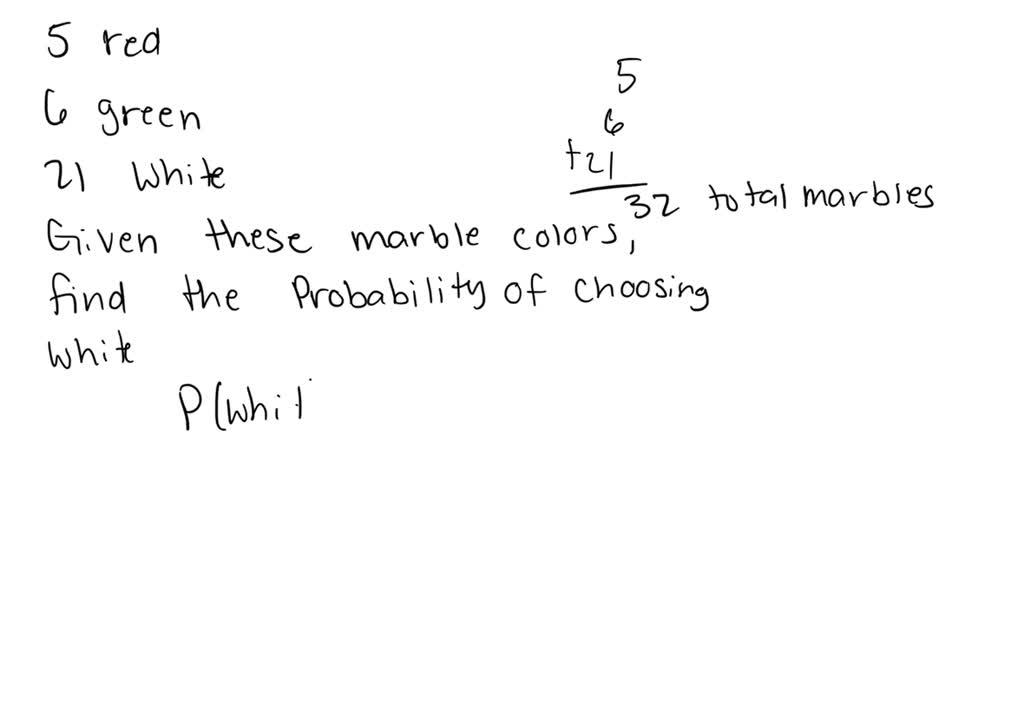 5 red
6 green
21 White
5
6
+21
32 total marbles
Given these marble colors,
find the Probability of choosing
white
P(whit